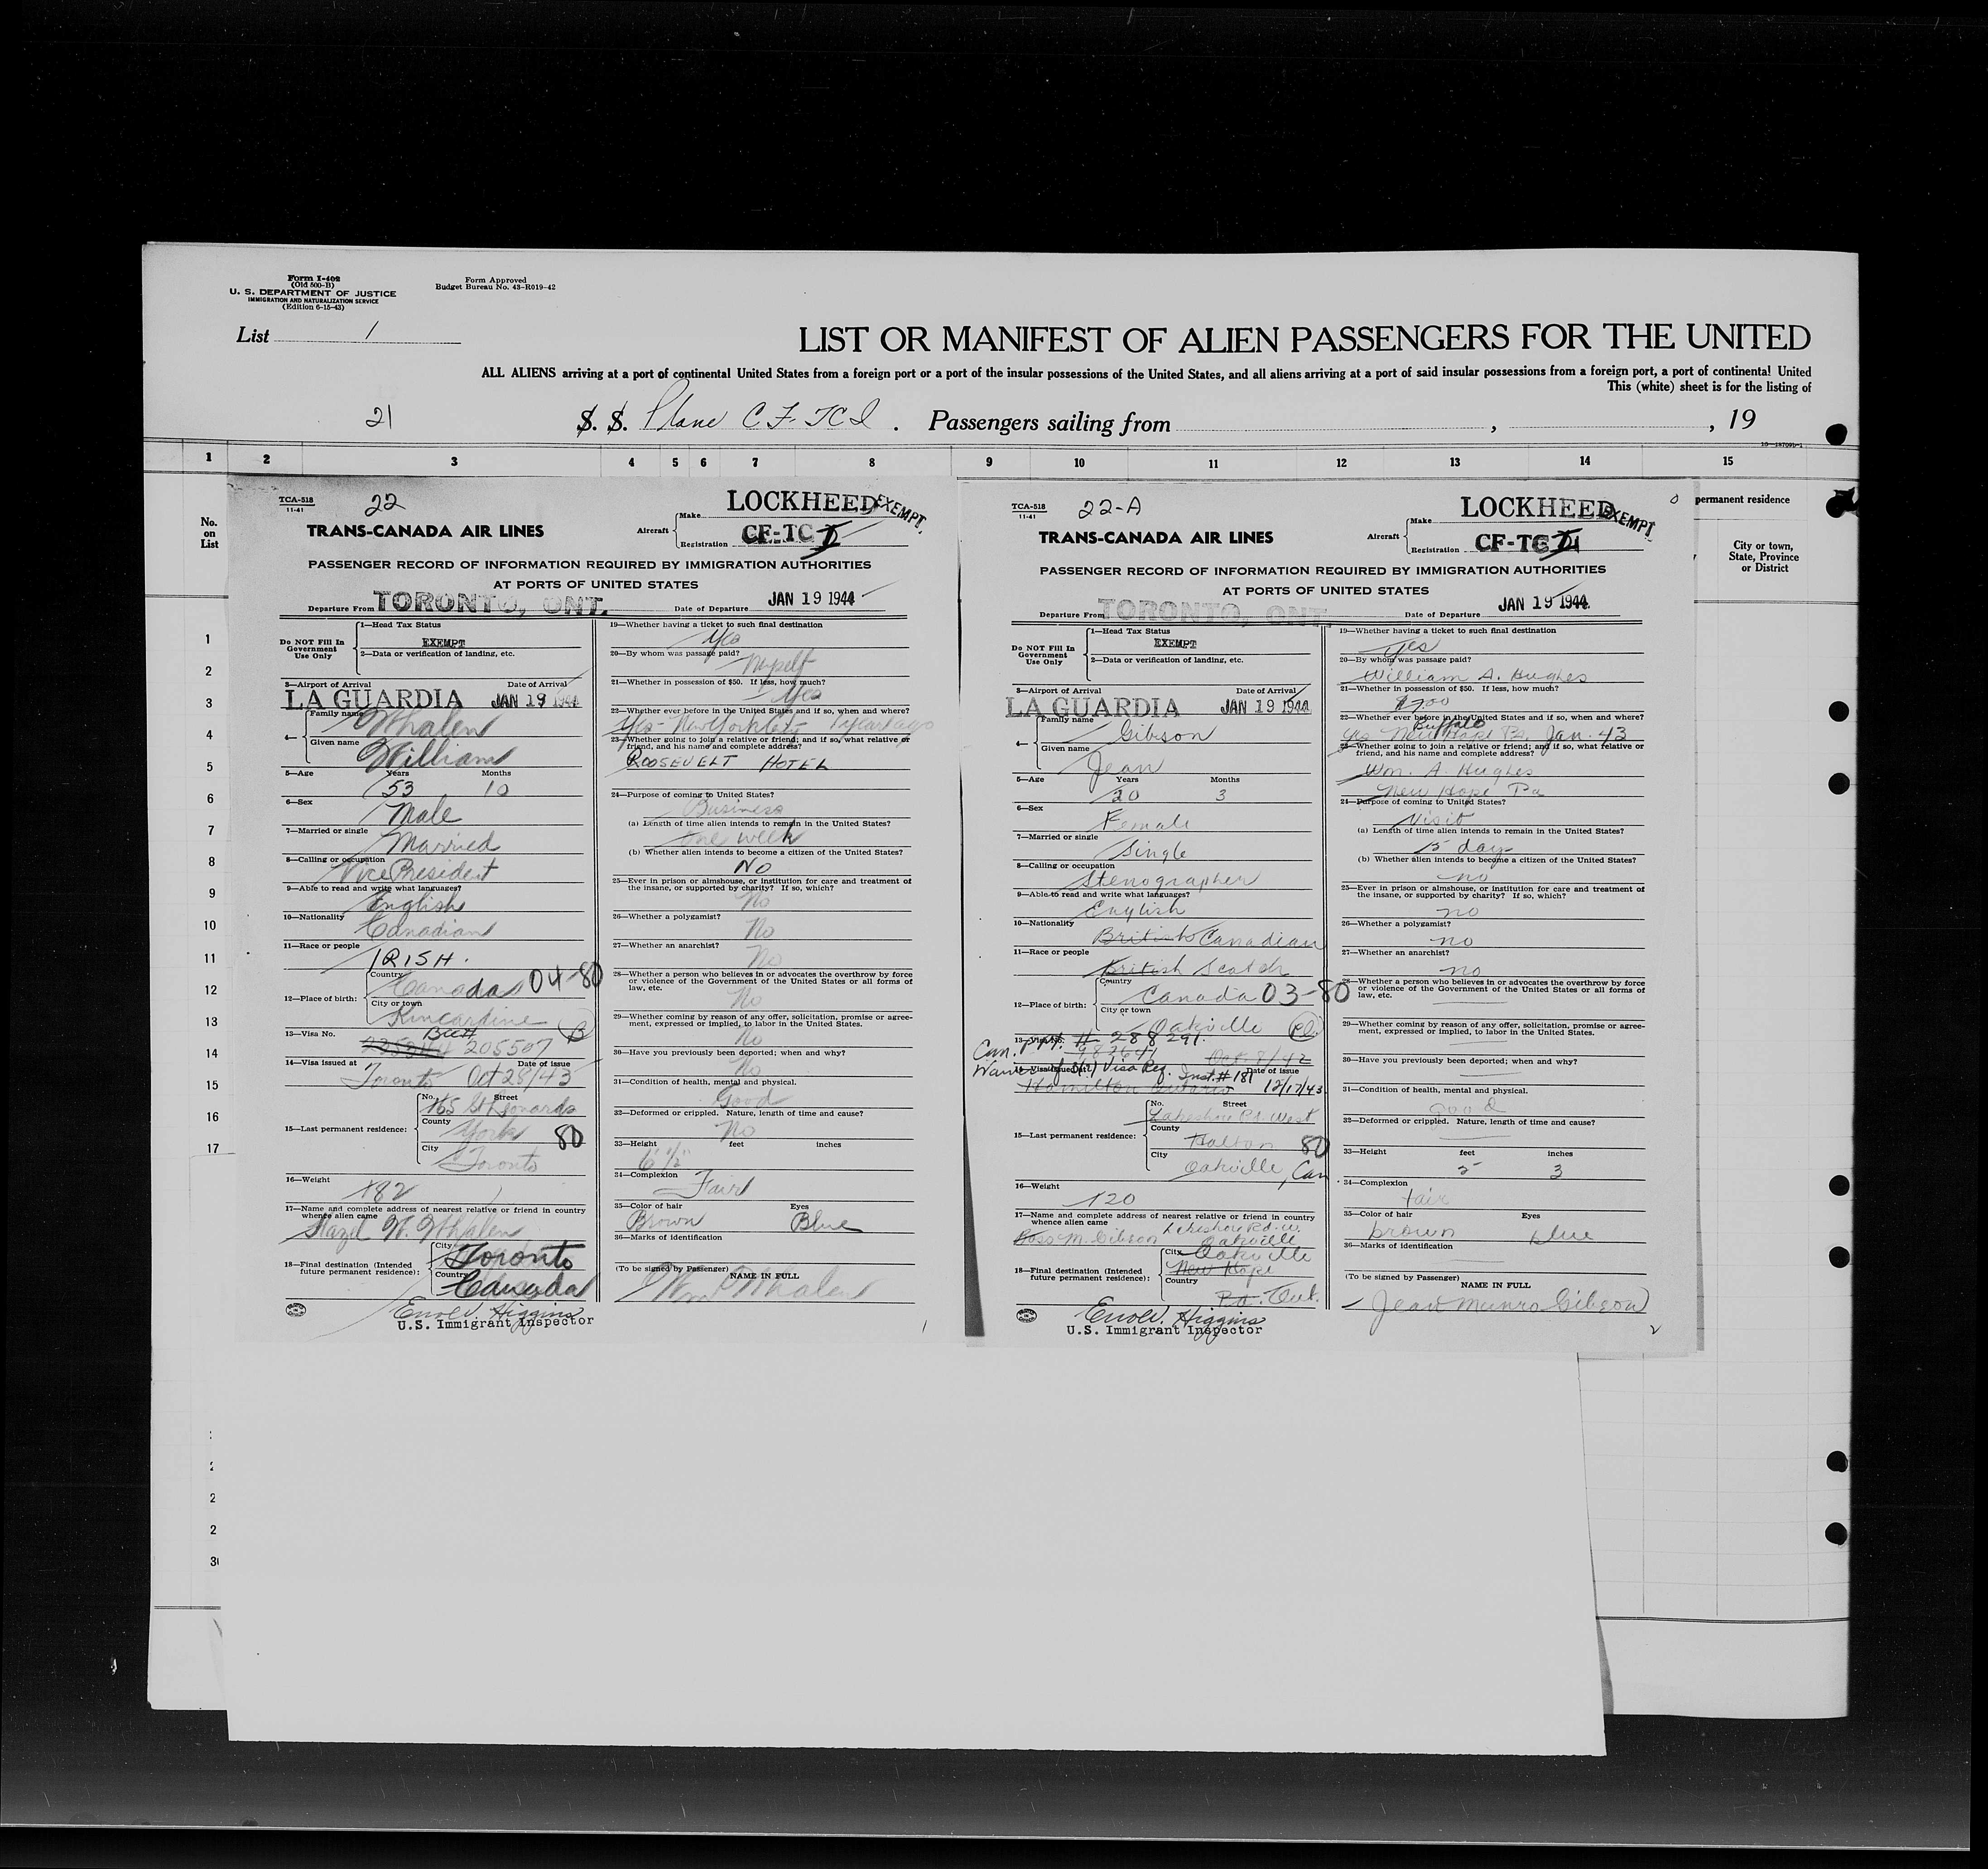 Form I-402
(Old 500-B)
U. S. DEPARTMENT OF JUSTICE
IMMIGRATION AND NATURALIZATION SERVICE
(Edition 6-15-43)
Form Approved
Budget Bureau No. 43-R019-42
List 1
LIST OR MANIFEST OF ALIEN PASSENGERS FOR THE UNITED
ALL ALIENS arriving at a port of continental United States from a foreign port or a port of the insular possessions of the United States, and all aliens arriving at a port of said insular possessions from a foreign port, a port of continental United
This (white) sheet is for the listing of
21 S. S. Plane CF-TCI. Passengers sailing from , , 19
1 2 3 4 5 6 7 8 9 10 11 12 13 14 15
No.
on
List
1
2
3
4
5
6
7
8
9
10
11
12
13
14
15
16
17
permanent residence
City or town,
State, Province
or District
TCA-518
11-41
22
LOCKHEED
EXEMPT
TRANS-CANADA AIR LINES
Aircraft Make
Registration CF-TCI
PASSENGER RECORD OF INFORMATION REQUIRED BY IMMIGRATION AUTHORITIES
AT PORTS OF UNITED STATES
Departure From TORONTO, ONT. Date of Departure JAN 19 1944
Do NOT Fill In
Government
Use Only
1—Head Tax Status
EXEMPT
2—Data or verification of landing, etc.
3—Airport of Arrival Date of Arrival
LA GUARDIA JAN 19 1944
4— Family name Whalen
Given name William
5—Age Years 53 Months 10
6—Sex Male
7—Married or single Married
8—Calling or occupation Vice President
9—Able to read and write what languages? English
10—Nationality Canadian
11—Race or people IRISH.
12—Place of birth: Country Canada 04-80
City or town Kincardine
B
13—Visa No. 205507
14—Visa issued at Toronto Date of issue Oct 28/43
15—Last permanent residence: No. Street 165 St Leonards
County York 80
City Toronto
16—Weight 182
17—Name and complete address of nearest relative or friend in country
whence alien came
Hazel W. Whalen
18—Final destination (Intended
future permanent residence):
City Toronto
Country Canada
Higgins
U.S. Immigrant Inspector
19—Whether having a ticket to such final destination
Yes
20—By whom was passage paid?
Myself
21—Whether in possession of $50. If less, how much?
Yes
22—Whether ever before in the United States and if so, when and where?
Yes - New York City - 1 year ago
23—Whether going to join a relative or friend; and if so, what relative or
friend, and his name and complete address?
ROOSEVELT HOTEL
24—Purpose of coming to United States?
Business
(a) Length of time alien intends to remain in the United States?
One week
(b) Whether alien intends to become a citizen of the United States?
No
25—Ever in prison or almshouse, or institution for care and treatment of
the insane, or supported by charity? If so, which?
No
26—Whether a polygamist?
No
27—Whether an anarchist?
No
28—Whether a person who believes in or advocates the overthrow by force
or violence of the Government of the United States or all forms of
law, etc.
No
29—Whether coming by reason of any offer, solicitation, promise or agree-
ment, expressed or implied, to labor in the United States.
No
30—Have you previously been deported; when and why?
No
31—Condition of health, mental and physical.
Good
32—Deformed or crippled. Nature, length of time and cause?
No
33—Height feet inches
6' 1/2"
34—Complexion
Fair
35—Color of hair Eyes
Brown Blue
36—Marks of identification
(To be signed by Passenger) NAME IN FULL
Wm Whalen
1
TCA-518
11-41
22-A
LOCKHEED
EXEMPT
TRANS-CANADA AIR LINES
Aircraft Make
Registration CF-TCI
PASSENGER RECORD OF INFORMATION REQUIRED BY IMMIGRATION AUTHORITIES
AT PORTS OF UNITED STATES
Departure From TORONTO, ONT. Date of Departure JAN 19 1944
Do NOT Fill In
Government
Use Only
1—Head Tax Status
EXEMPT
2—Data or verification of landing, etc.
3—Airport of Arrival Date of Arrival
LA GUARDIA JAN 19 1944
4— Family name Gibson
Given name Jean
5—Age Years 20 Months 3
6—Sex Female
7—Married or single Single
8—Calling or occupation Stenographer
9—Able to read and write what languages? English
10—Nationality British Canadian
11—Race or people British Scotch
12—Place of birth: Country Canada 03-80
City or town Oakville
13—Visa No.
Can. PPt. # 288291
Oct. 8/42
14—Visa issued at Date of issue
Visa Reg. Inst. # 181
Hamilton Ontario 12/17/43
15—Last permanent residence: No. Street Lakeshore Rd. West
County Halton 80
City Oakville, Can
16—Weight 120
17—Name and complete address of nearest relative or friend in country
whence alien came
Lakeshore Rd. W.
Ross M. Gibson Oakville
18—Final destination (Intended
future permanent residence):
City Oakville
New Hope
Country
Pa. Ont.
Higgins
U.S. Immigrant Inspector
19—Whether having a ticket to such final destination
Yes
20—By whom was passage paid?
William A. Hughes
21—Whether in possession of $50. If less, how much?
22—Whether ever before in the United States and if so, when and where?
Buffalo
Yes New Hope Pa. Jan. 43
23—Whether going to join a relative or friend; and if so, what relative or
friend, and his name and complete address?
Wm. A. Hughes
New Hope Pa
24—Purpose of coming to United States?
Visit
(a) Length of time alien intends to remain in the United States?
15 days
(b) Whether alien intends to become a citizen of the United States?
no
25—Ever in prison or almshouse, or institution for care and treatment of
the insane, or supported by charity? If so, which?
no
26—Whether a polygamist?
no
27—Whether an anarchist?
no
28—Whether a person who believes in or advocates the overthrow by force
or violence of the Government of the United States or all forms of
law, etc.
29—Whether coming by reason of any offer, solicitation, promise or agree-
ment, expressed or implied, to labor in the United States.
30—Have you previously been deported; when and why?
31—Condition of health, mental and physical.
good
32—Deformed or crippled. Nature, length of time and cause?
33—Height feet inches
5 3
34—Complexion
fair
35—Color of hair Eyes
brown blue
36—Marks of identification
(To be signed by Passenger) NAME IN FULL
Jean Munro Gibson
2